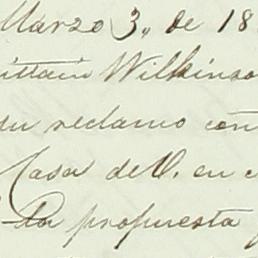 Marzo 3,, de 18
ittain Wilkinso
su reclamo con
Casa de V. en c
La propuesta